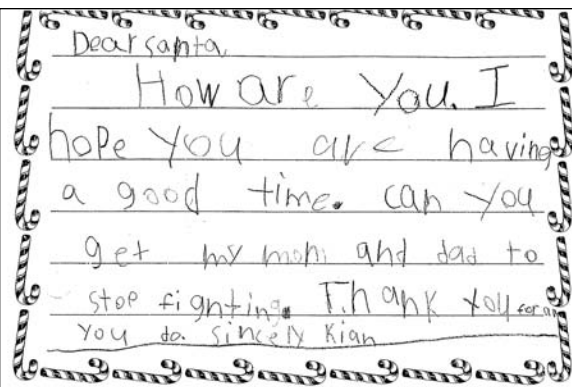 Dear santa,
How are You. I
hope You are having
a good time. can you
get my mom and dad to
stop fighting. Thank you for all
you do. Sincely Kian